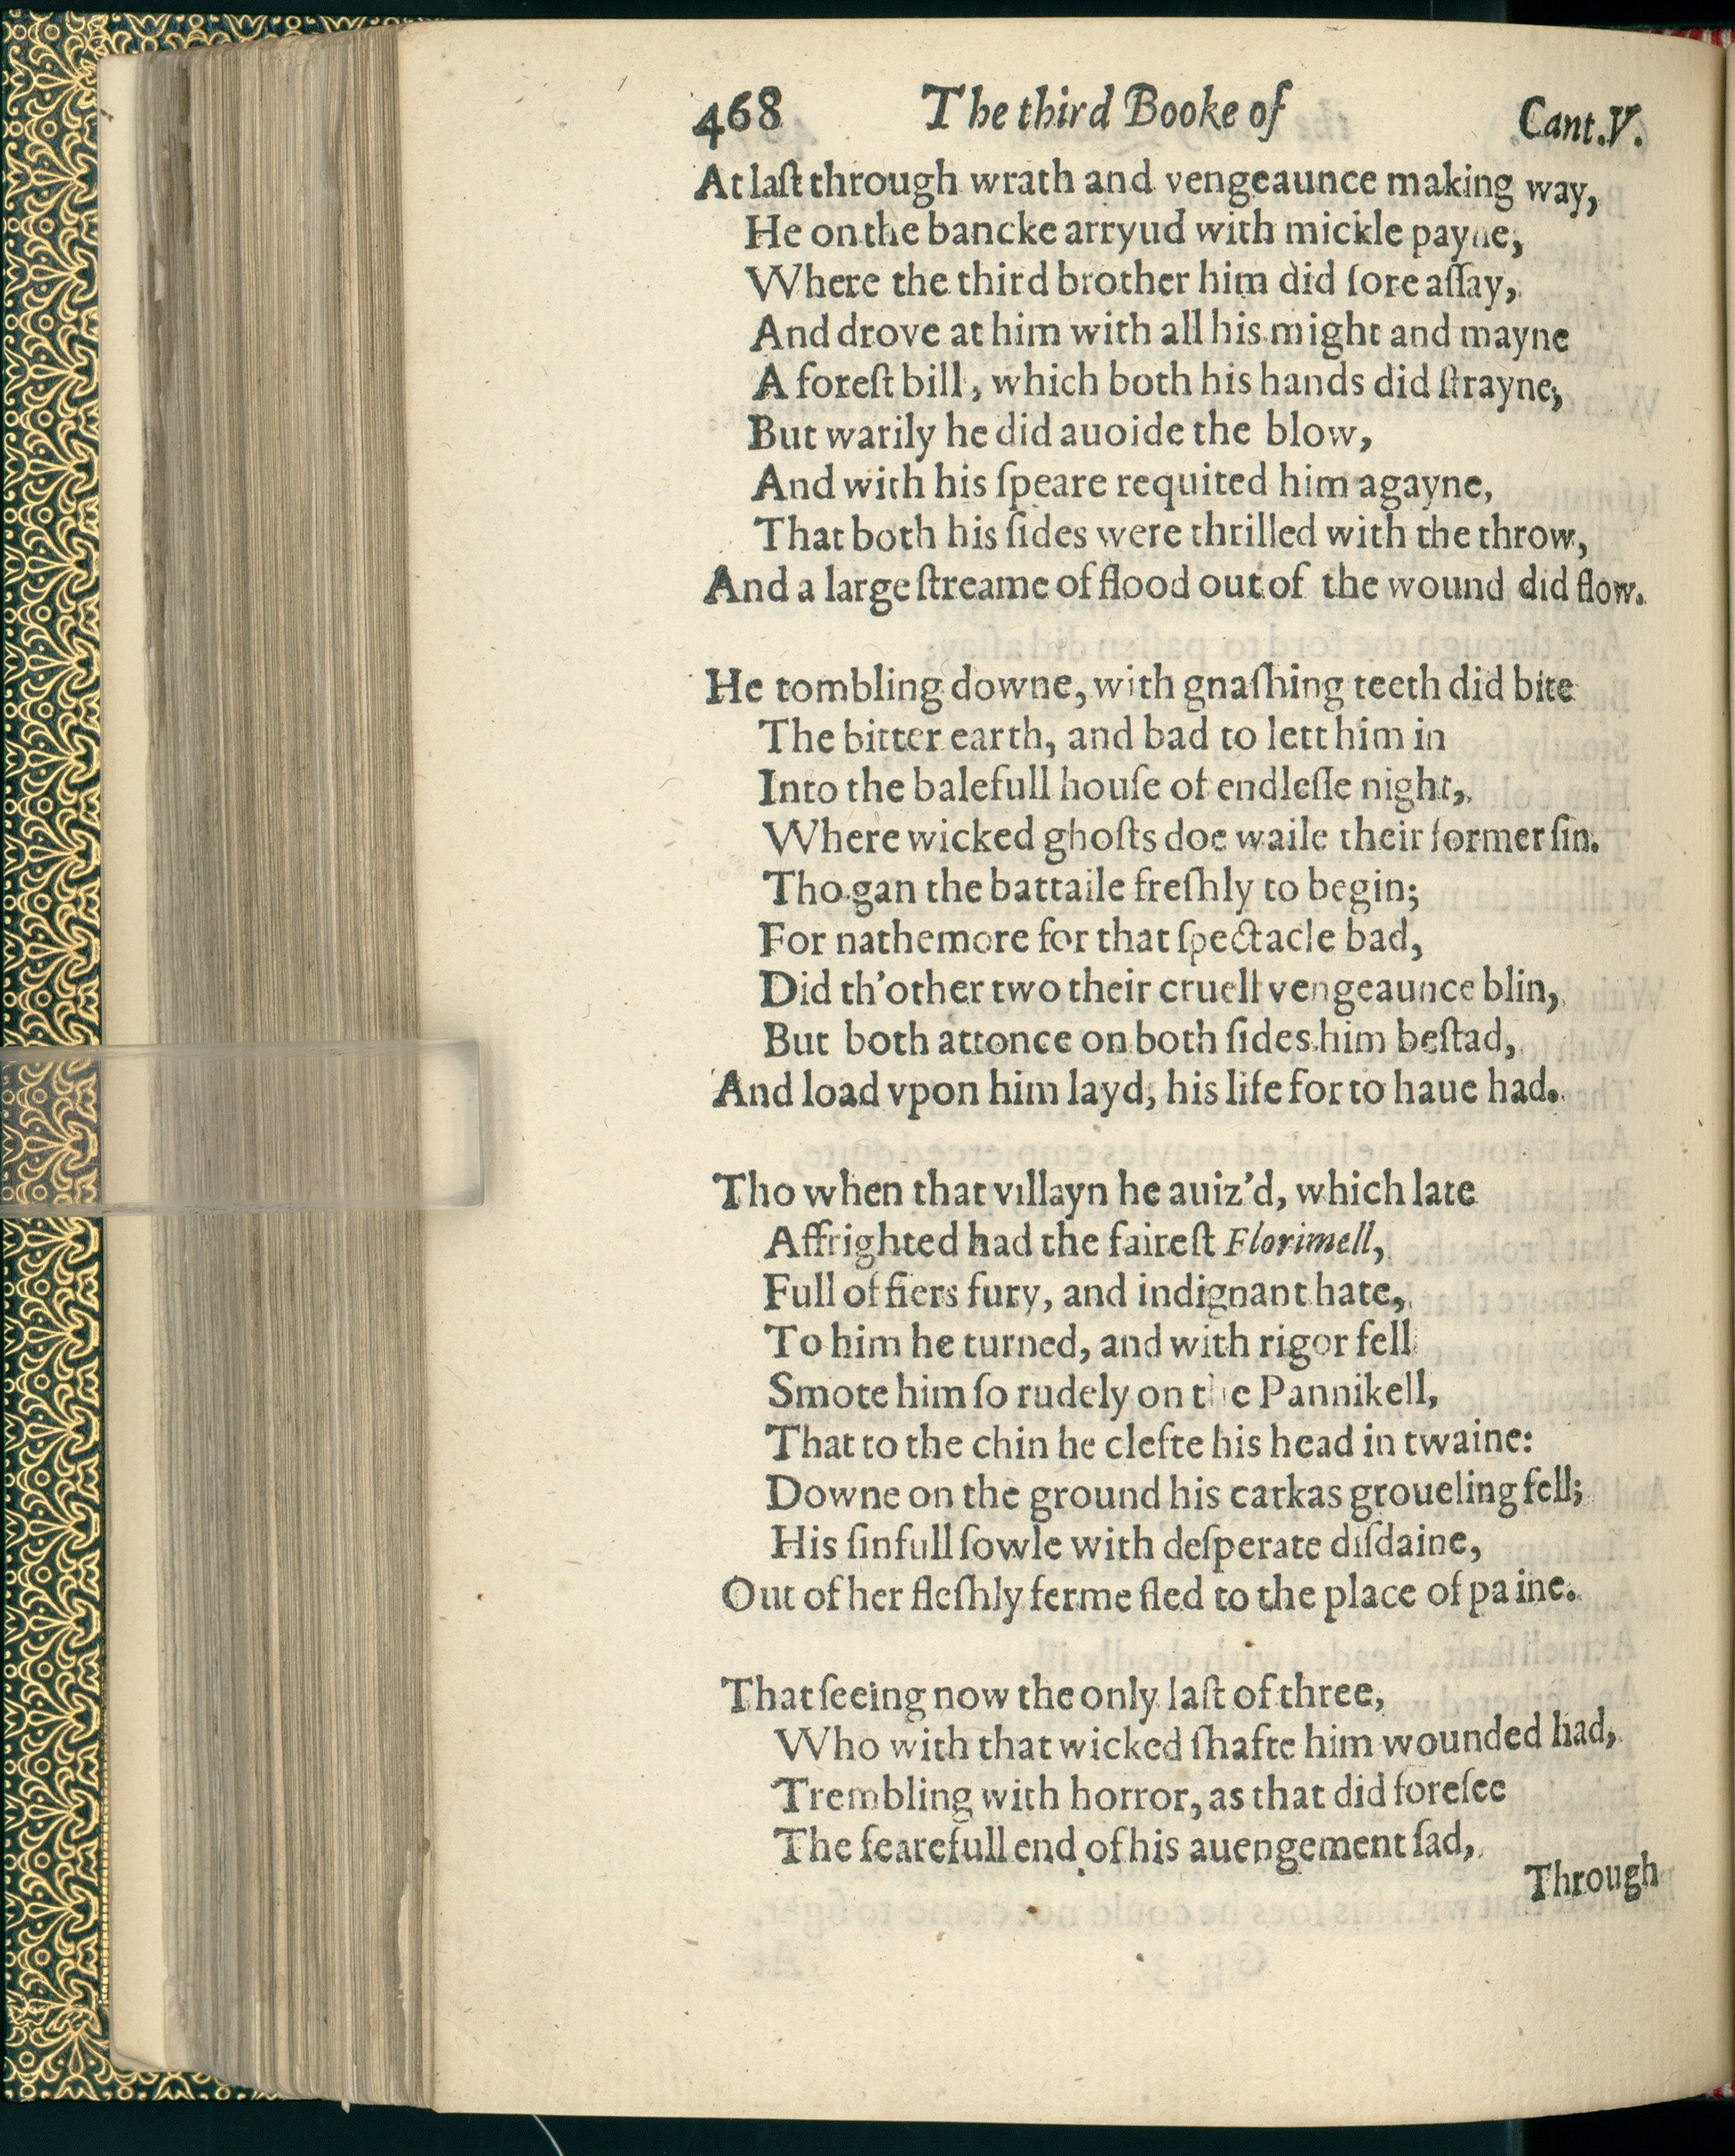 468 The third Booke of Cant.V.
At laſt through wrath and vengeaunce making way,
He on the bancke arryud with mickle payne,
Where the third brother him did ſore aſſay,
And drove at him with all his might and mayne
A foreſt bill, which both his hands did ſtrayne;
But warily he did auoide the blow,
And with his ſpeare requited him agayne,
That both his ſides were thrilled with the throw,
And a large ſtreame of flood out of the wound did flow.
He tombling downe, with gnaſhing teeth did bite
The bitter earth, and bad to lett him in
Into the balefull houſe of endleſſe night,
Where wicked ghoſts doe waile their former ſin.
Tho gan the battaile freſhly to begin;
For nathemore for that ſpectacle bad,
Did th'other two their cruell vengeaunce blin,
But both attonce on both ſides him beſtad,
And load vpon him layd, his life for to haue had.
Tho when that villayn he auiz'd, which late
Affrighted had the faireſt Florimell,
Full of fiers fury, and indignant hate,
To him he turned, and with rigor fell
Smote him ſo rudely on the Pannikell,
That to the chin he clefte his head in twaine:
Downe on the ground his carkas groueling fell;
His ſinfull ſowle with deſperate diſdaine,
Out of her fleſhly ferme fled to the place of paine.
That ſeeing now the only laſt of three,
Who with that wicked ſhafte him wounded had,
Trembling with horror, as that did foreſee
The fearefull end of his auengement ſad,
Through